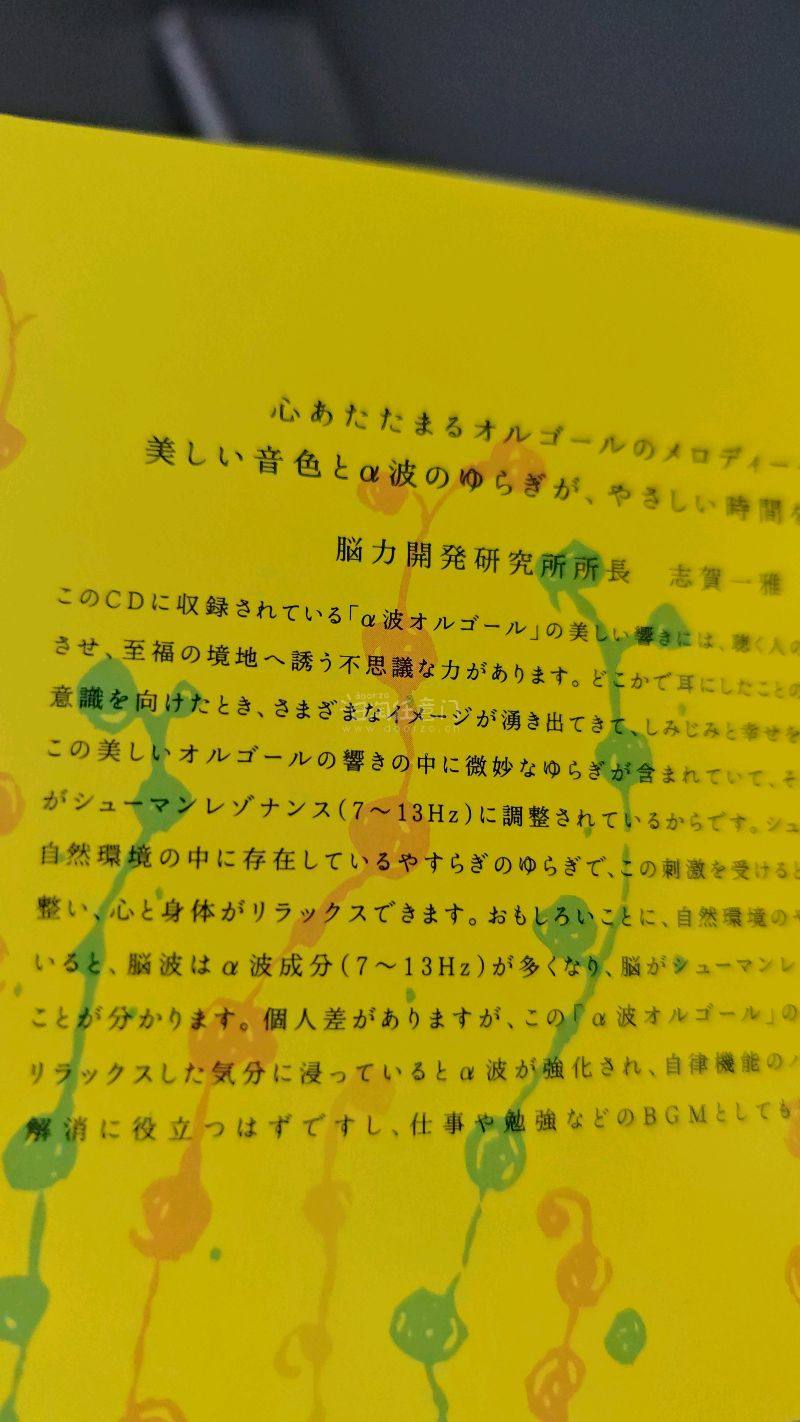 心あたたまるオルゴールのメロディー
美しい音色とα波のゆらぎが、やさしい時間を
脳力開発研究所所長 志賀一雅
このCDに収録されている「α波オルゴール」の美しい響きには、聴く人の
させ、至福の境地へ誘う不思議な力があります。どこかで耳にしたことの
意識を向けたとき、さまざまなイメージが湧き出てきて、しみじみと幸せを
この美しいオルゴールの響きの中に微妙なゆらぎが含まれていて、そ
がシューマンレゾナンス(7〜13Hz)に調整されているからです。シュ
自然環境の中に存在しているやすらぎのゆらぎで、この刺激を受けると
整い、心と身体がリラックスできます。おもしろいことに、自然環境のや
いると、脳波はα波成分(7〜13Hz)が多くなり、脳がシューマンレ
ことが分かります。個人差がありますが、この「α波オルゴール」の
リラックスした気分に浸っているとα波が強化され、自律機能のバ
解消に役立つはずですし、仕事や勉強などのBGMとしても
doorzo
任意门
www.doorzo.cn